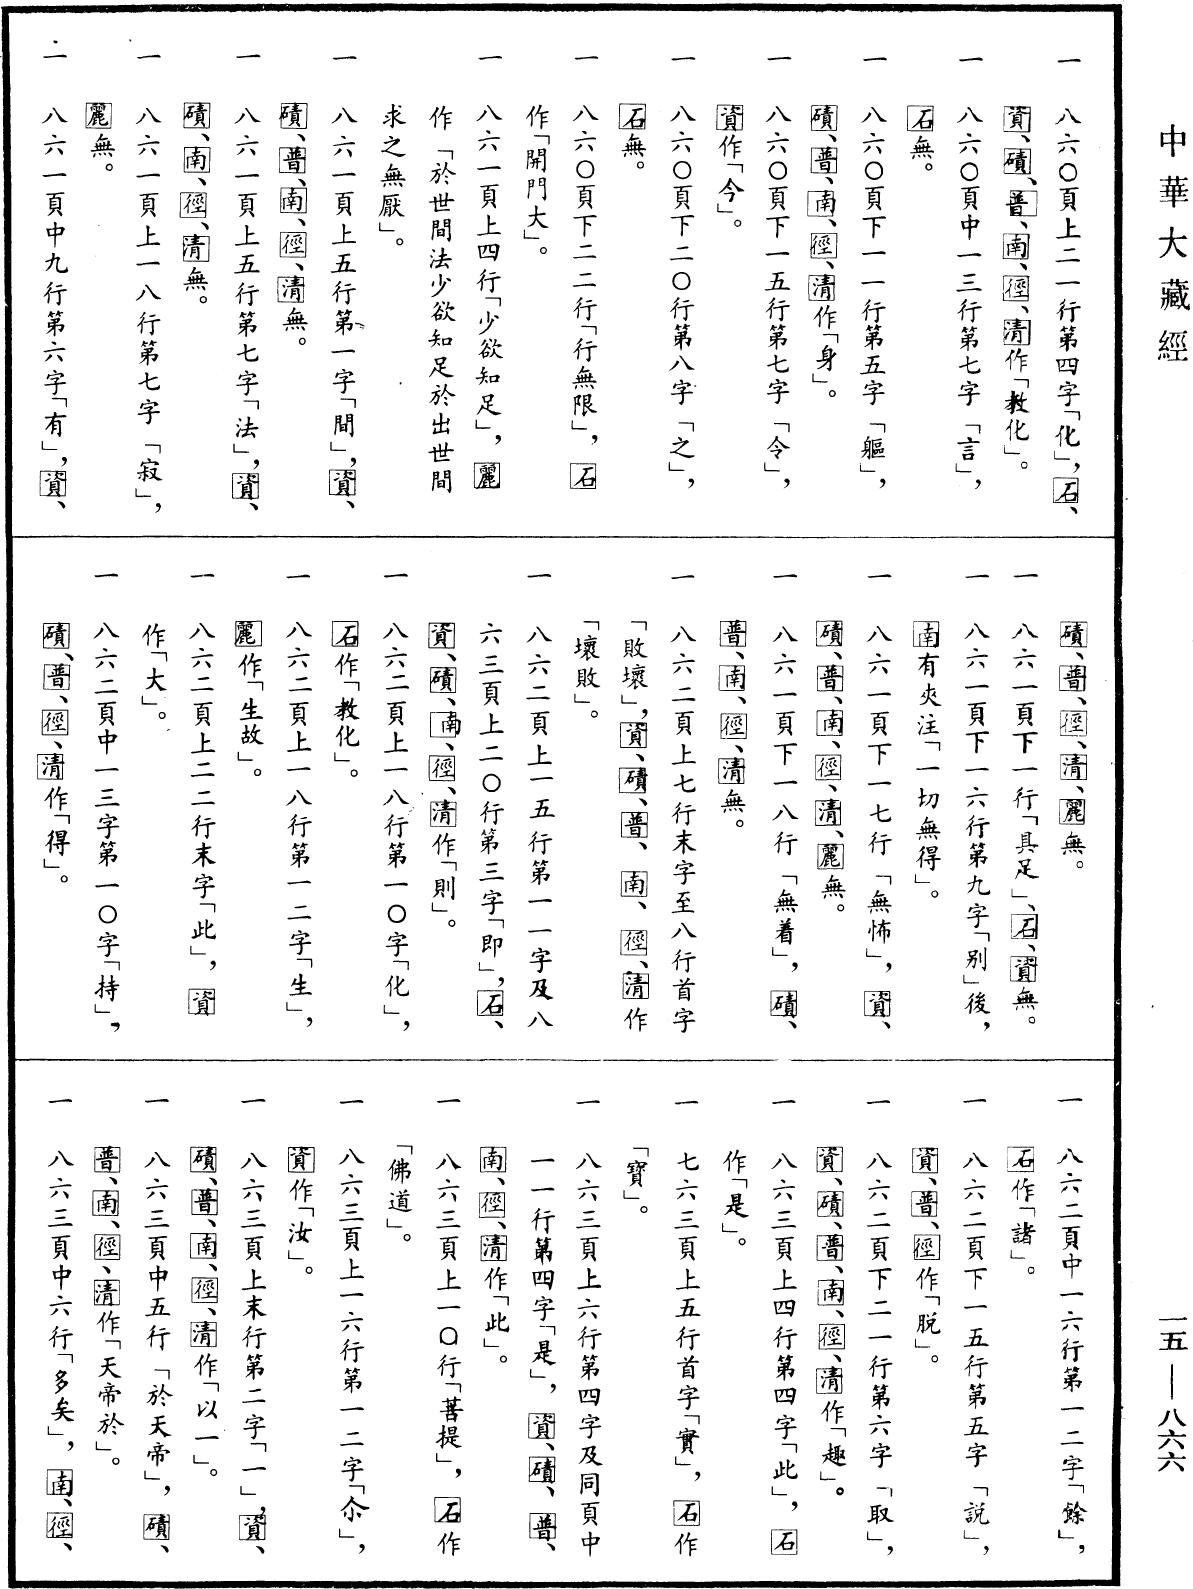 中華大藏經
一　八六〇頁上二一行第四字「化」，石、
資、磧、普、南、徑、清作「教化」。
一　八六〇頁中一三行第七字「言」，
石無。
一　八六〇頁下一一行第五字「軀」，
磧、普、南、徑、清作「身」。
一　八六〇頁下一五行第七字「令」，
資作「今」。
一　八六〇頁下二〇行第八字「之」，
石無。
一　八六〇頁下二二行「行無限」，石
作「開門大」。
一　八六一頁上四行「少欲知足」，麗
作「於世間法少欲知足於出世間
求之無厭」。
一　八六一頁上五行第一字「間」，資、
磧、普、南、徑、清無。
一　八六一頁上五行第七字「法」，資、
磧、南、徑、清無。
一　八六一頁上一八行第七字「寂」，
麗無。
一　八六一頁中九行第六字「有」，資、
磧、普、徑、清、麗無。
一　八六一頁下一行「具足」、石、資無。
一　八六一頁下一六行第九字「别」後，
南有夾注「一切無得」。
一　八六一頁下一七行「無怖」，資、
磧、普、南、徑、清、麗無。
一　八六一頁下一八行「無着」，磧、
普、南、徑、清無。
一　八六二頁上七行末字至八行首字
「敗壞」，資、磧、普、南、徑、清作
「壞敗」。
一　八六二頁上一五行第一一字及八
六三頁上二〇行第三字「即」，石、
資、磧、南、徑、清作「則」。
一　八六二頁上一八行第一〇字「化」，
石作「教化」。
一　八六二頁上一八行第一二字「生」，
麗作「生故」。
一　八六二頁上二二行末字「此」，資
作「大」。
一　八六二頁中一三字第一〇字「持」，
磧、普、徑、清作「得」。
一　八六二頁中一六行第一二字「餘」，
石作「諸」。
一　八六二頁下一五行第五字「説」，
資、普、徑作「脱」。
一　八六二頁下二一行第六字「取」，
資、磧、普、南、徑、清作「趣」。
一　八六三頁上四行第四字「此」，石
作「是」。
一　七六三頁上五行首字「實」，石作
「寶」。
一　八六三頁上六行第四字及同頁中
一一行第四字「是」，資、磧、普、
南、徑、清作「此」。
一　八六三頁上一〇行「菩提」，石作
「佛道」。
一　八六三頁上一六行第一二字「尒」，
資作「汝」。
一　八六三頁上末行第二字「一」，資、
磧、普、南、徑、清作「以一」。
一　八六三頁中五行「於天帝」，磧、
普、南、徑、清作「天帝於」。
一　八六三頁中六行「多矣」，南、徑、
一五——八六六